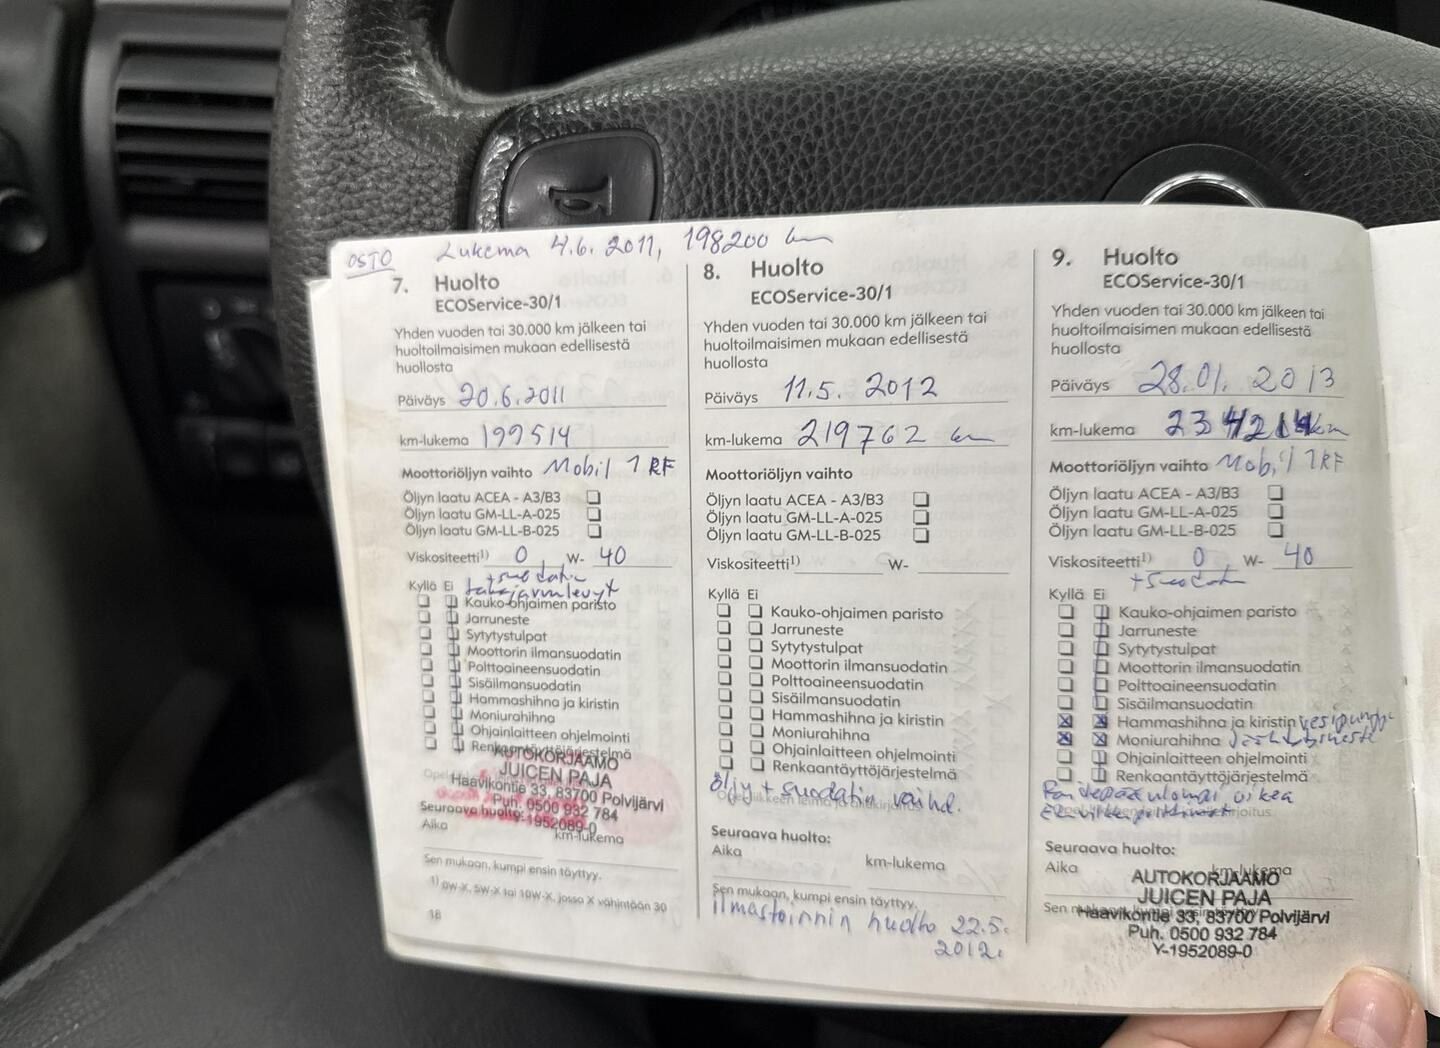 OSTO Lukema 4.6. 2011, 198200 km
7. Huolto
ECOService-30/1
Yhden vuoden tai 30.000 km jälkeen tai
huoltoilmaisimen mukaan edellisestä
huollosta
Päiväys 20.6.2011
km-lukema 199514
Moottoriöljyn vaihto Mobil 1 RF
Öljyn laatu ACEA - A3/B3
Öljyn laatu GM-LL-A-025
Öljyn laatu GM-LL-B-025
Viskositeetti1) 0 W- 40
+suodatin
Kyllä Ei takajarrulevyt
Kauko-ohjaimen paristo
Jarruneste
Sytytystulpat
Moottorin ilmansuodatin
Polttoaineensuodatin
Sisäilmansuodatin
Hammashihna ja kiristin
Moniurahihna
Ohjainlaitteen ohjelmointi
Renkaantäyttöjärjestelmä
AUTOKORJAAMO
JUICEN PAJA
Haavikontie 33, 83700 Polvijärvi
Puh. 0500 932 784
Seuraava huolto: 1952089-0
Aika km-lukema
Sen mukaan, kumpi ensin täyttyy.
1) 0W-X, 5W-X tai 10W-X, jossa X vähintään 30
18
8. Huolto
ECOService-30/1
Yhden vuoden tai 30.000 km jälkeen tai
huoltoilmaisimen mukaan edellisestä
huollosta
Päiväys 11.5. 2012
km-lukema 219762 km
Moottoriöljyn vaihto
Öljyn laatu ACEA - A3/B3
Öljyn laatu GM-LL-A-025
Öljyn laatu GM-LL-B-025
Viskositeetti1) W-
Kyllä Ei
Kauko-ohjaimen paristo
Jarruneste
Sytytystulpat
Moottorin ilmansuodatin
Polttoaineensuodatin
Sisäilmansuodatin
Hammashihna ja kiristin
Moniurahihna
Ohjainlaitteen ohjelmointi
Renkaantäyttöjärjestelmä
Öljy + suodatin vaihd.
Seuraava huolto:
Aika km-lukema
Sen mukaan, kumpi ensin täyttyy.
ilmastoinnin huolto 22.5.
2012.
9. Huolto
ECOService-30/1
Yhden vuoden tai 30.000 km jälkeen tai
huoltoilmaisimen mukaan edellisestä
huollosta
Päiväys 28.01. 2013
km-lukema 234214km
Moottoriöljyn vaihto Mobil 1RF
Öljyn laatu ACEA - A3/B3
Öljyn laatu GM-LL-A-025
Öljyn laatu GM-LL-B-025
Viskositeetti1) 0 W- 40
+suodatin
Kyllä Ei
Kauko-ohjaimen paristo
Jarruneste
Sytytystulpat
Moottorin ilmansuodatin
Polttoaineensuodatin
Sisäilmansuodatin
Hammashihna ja kiristin vesipumppu
Moniurahihna jäähdytysneste
Ohjainlaitteen ohjelmointi
Renkaantäyttöjärjestelmä
oikea
Seuraava huolto:
Aika km-lukema
AUTOKORJAAMO
JUICEN PAJA
Haavikontie 33, 83700 Polvijärvi
Puh. 0500 932 784
Y-1952089-0